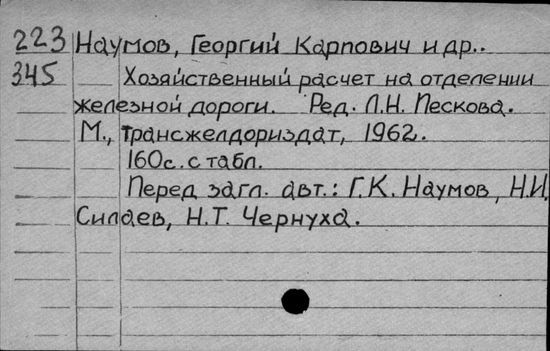 223 Наумов, Георгий Карпович и др..
345 Хозяйственный расчет на отделении
железной дороги. Ред. Л.Н. Пескова.
М., Трансжелдориздат, 1962.
160с. с табл.
Перед загл. авт.: Г.К. Наумов, Н.И.
Силаев, Н.Т. Чернуха.